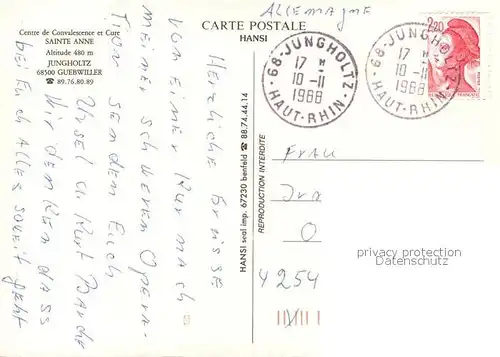 CARTE POSTALE
HANSI
ALLEMAGNE
Centre de Convalescence et Cure
SAINTE ANNE
Altitude 480 m
JUNGHOLTZ
68500 GUEBWILLER
☎ 89.76.80.89
Herzliche Grüsse
von einer Kur nach
meiner schweren Opera-
tion senden Euch
Ursel u. Kurt
Wir denken dass
bei Euch alles soweit geht
HANSI seul imp. 67230 benfeld ☎ 88.74.44.14
REPRODUCTION INTERDITE
68-JUNGHOLTZ
17 H
10-11
1988
HAUT-RHIN
68-JUNGHOLTZ
17 H
10-11
1988
HAUT-RHIN
2,20
Frau
O
4254
privacy protection
Datenschutz